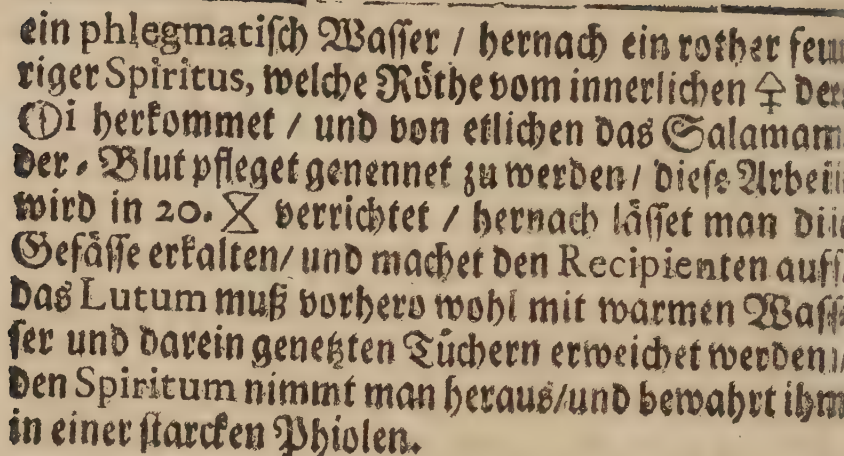 ein phlegmatiſch Waſſer / hernach ein rother feu
riger Spiritus, welche Röthe vom innerlichen 🜍 der
🜕i herkommet / und von etlichen das Salaman
der - Blut pfleget genennet zu werden / dieſe Arbeit
wird in 20. ⧖ verrichtet / hernach läſſet man die
Gefäſſe erkalten / und machet den Recipienten auff /
das Lutum muß vorhero wohl mit warmen Waſ
ſer und darein genetzten Tüchern erweichet werden /
den Spiritum nimmt man heraus / und bewahrt ihn
in einer ſtarcken Phiolen.